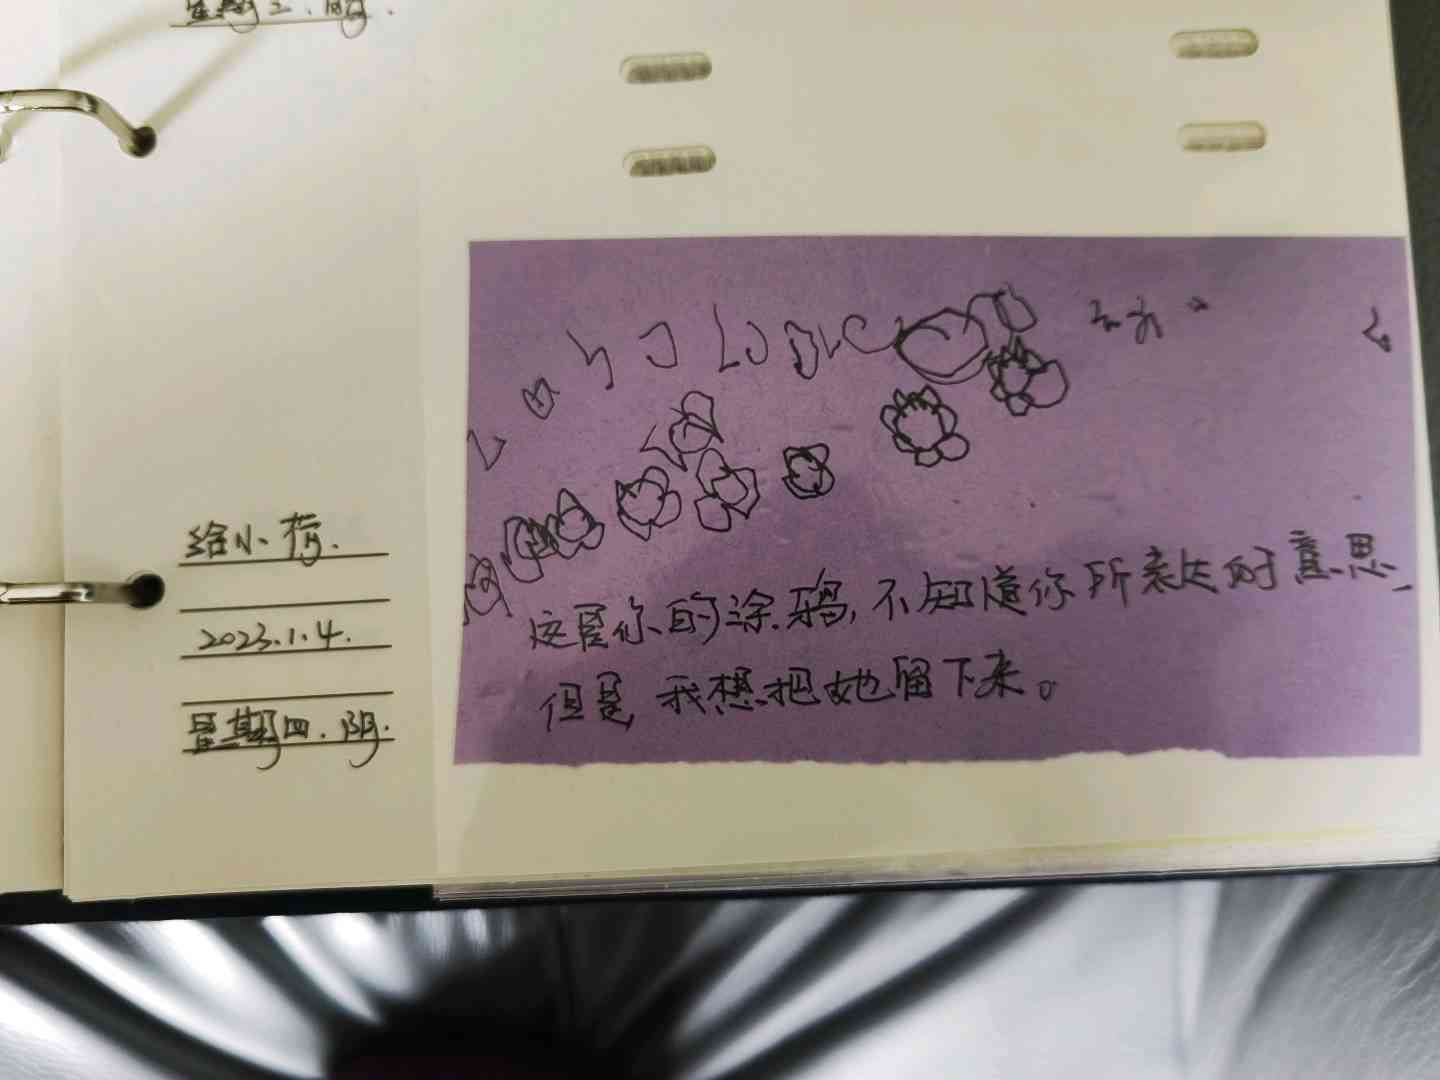 星期三.阴.
给小荷.
2023.1.4.
星期四.阴.
这是你的涂鸦,不知道你所表达的意思,
但是我想把她留下来。